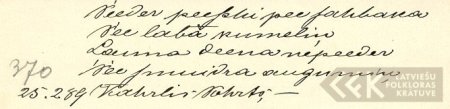 Seeder peeschi pee sahbaka
See labâ kumelin
Launa deena nepeeder
See smuidra augumin
370
25.2.89 Kahrlis
LATVIEŠU
FOLKLORAS
KRĀTUVE